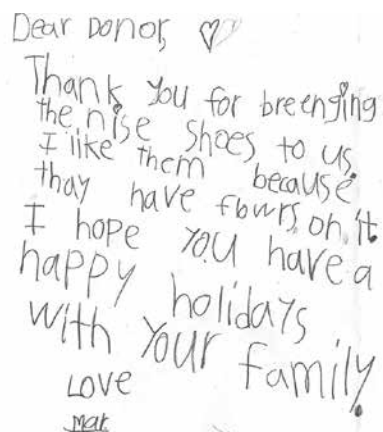 Dear Donor, ♡
Thank you for breenging
the nise shoes to us.
I like them because
thay have flowrs on it.
I hope you have a
happy holidays
with your family.
Love
Mar